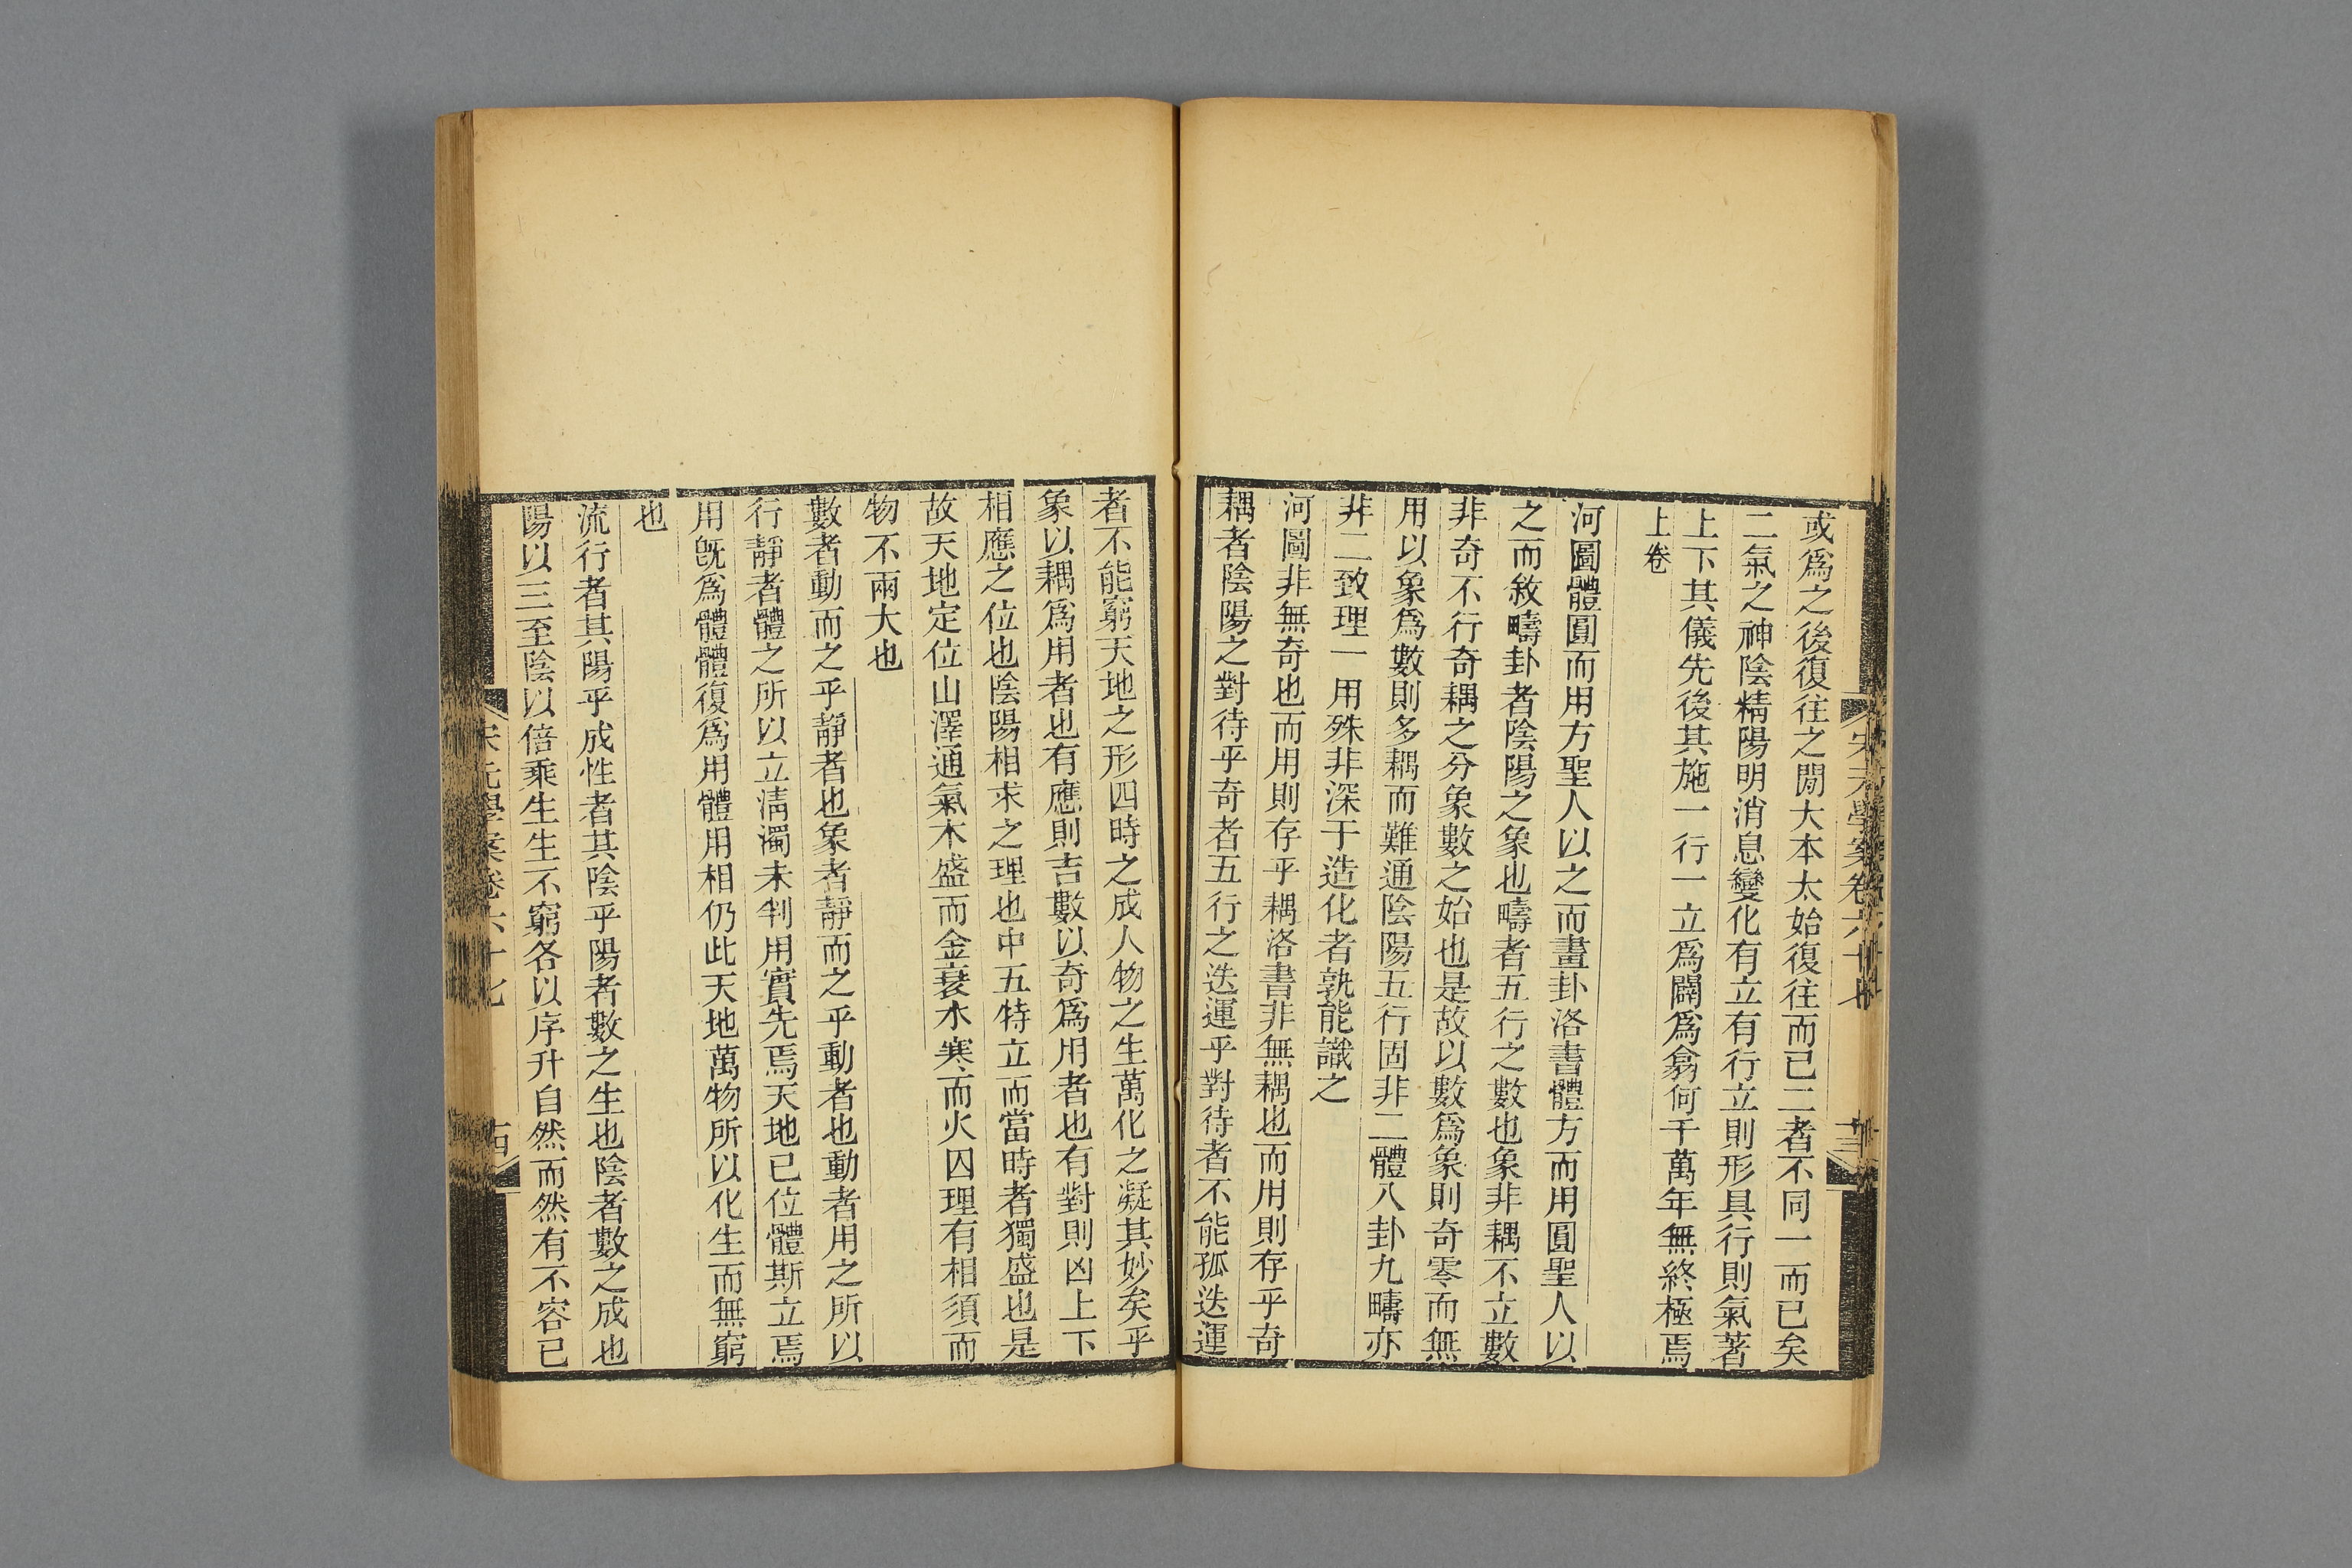 宋元學案卷六十七
十三
或爲之後復往之閒大本太始復往而已二者不同一而已矣
二氣之神陰精陽明消息變化有立有行立則形具行則氣著
上下其儀先後其施一行一立爲闢爲翕何千萬年無終極焉
上卷
河圖體圓而用方聖人以之而畫卦洛書體方而用圓聖人以
之而敘疇卦者陰陽之象也疇者五行之數也象非耦不立數
非奇不行奇耦之分象數之始也是故以數爲象則奇零而無
用以象爲數則多耦而難通陰陽五行固非二體八卦九疇亦
非二致理一用殊非深于造化者孰能識之
河圖非無奇也而用則存乎耦洛書非無耦也而用則存乎奇
耦者陰陽之對待乎奇者五行之迭運乎對待者不能孤迭運
者不能窮天地之形四時之成人物之生萬化之凝其妙矣乎
象以耦爲用者也有應則吉數以奇爲用者也有對則凶上下
相應之位也陰陽相求之理也中五特立而當時者獨盛也是
故天地定位山澤通氣木盛而金衰水寒而火囚理有相須而
物不兩大也
數者動而之乎靜者也象者靜而之乎動者也動者用之所以
行靜者體之所以立淸濁未判用實先焉天地已位體斯立焉
用旣爲體體復爲用體用相仍此天地萬物所以化生而無窮
也
流行者其陽乎成性者其陰乎陽者數之生也陰者數之成也
陽以三至陰以倍乘生生不窮各以序升自然而然有不容已
宋元學案卷六十七